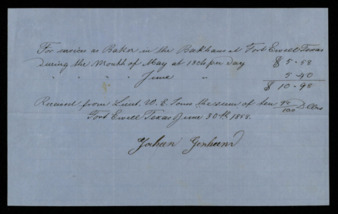 For services as Baker in the Bakhaus at Fort Ewell Texas
During the Month of May at 18 cts pr day $ 5-58
" " " " June " 5-40
$ 10-98
Received from Lieut. W. E. the sum of ten 98/100 Dollars
Fort Ewell Texas June 30th 185
Johan